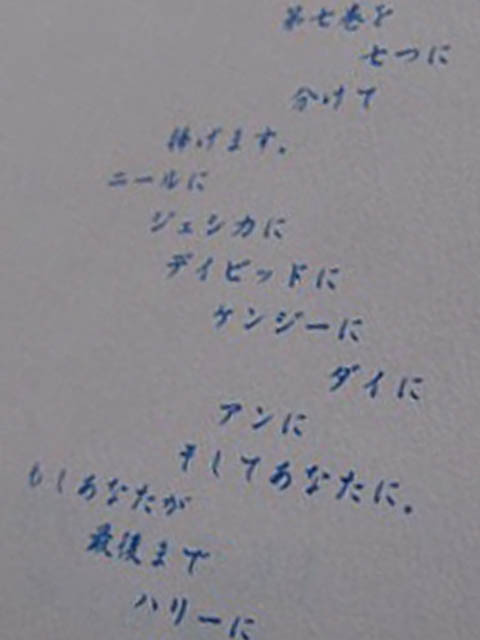 第七巻を
七つに
分けて
捧げます。
ニールに
ジェシカに
デイビッドに
ケンジーに
ダイに
アンに
そしてあなたに。
もしあなたが
最後まで
ハリーに